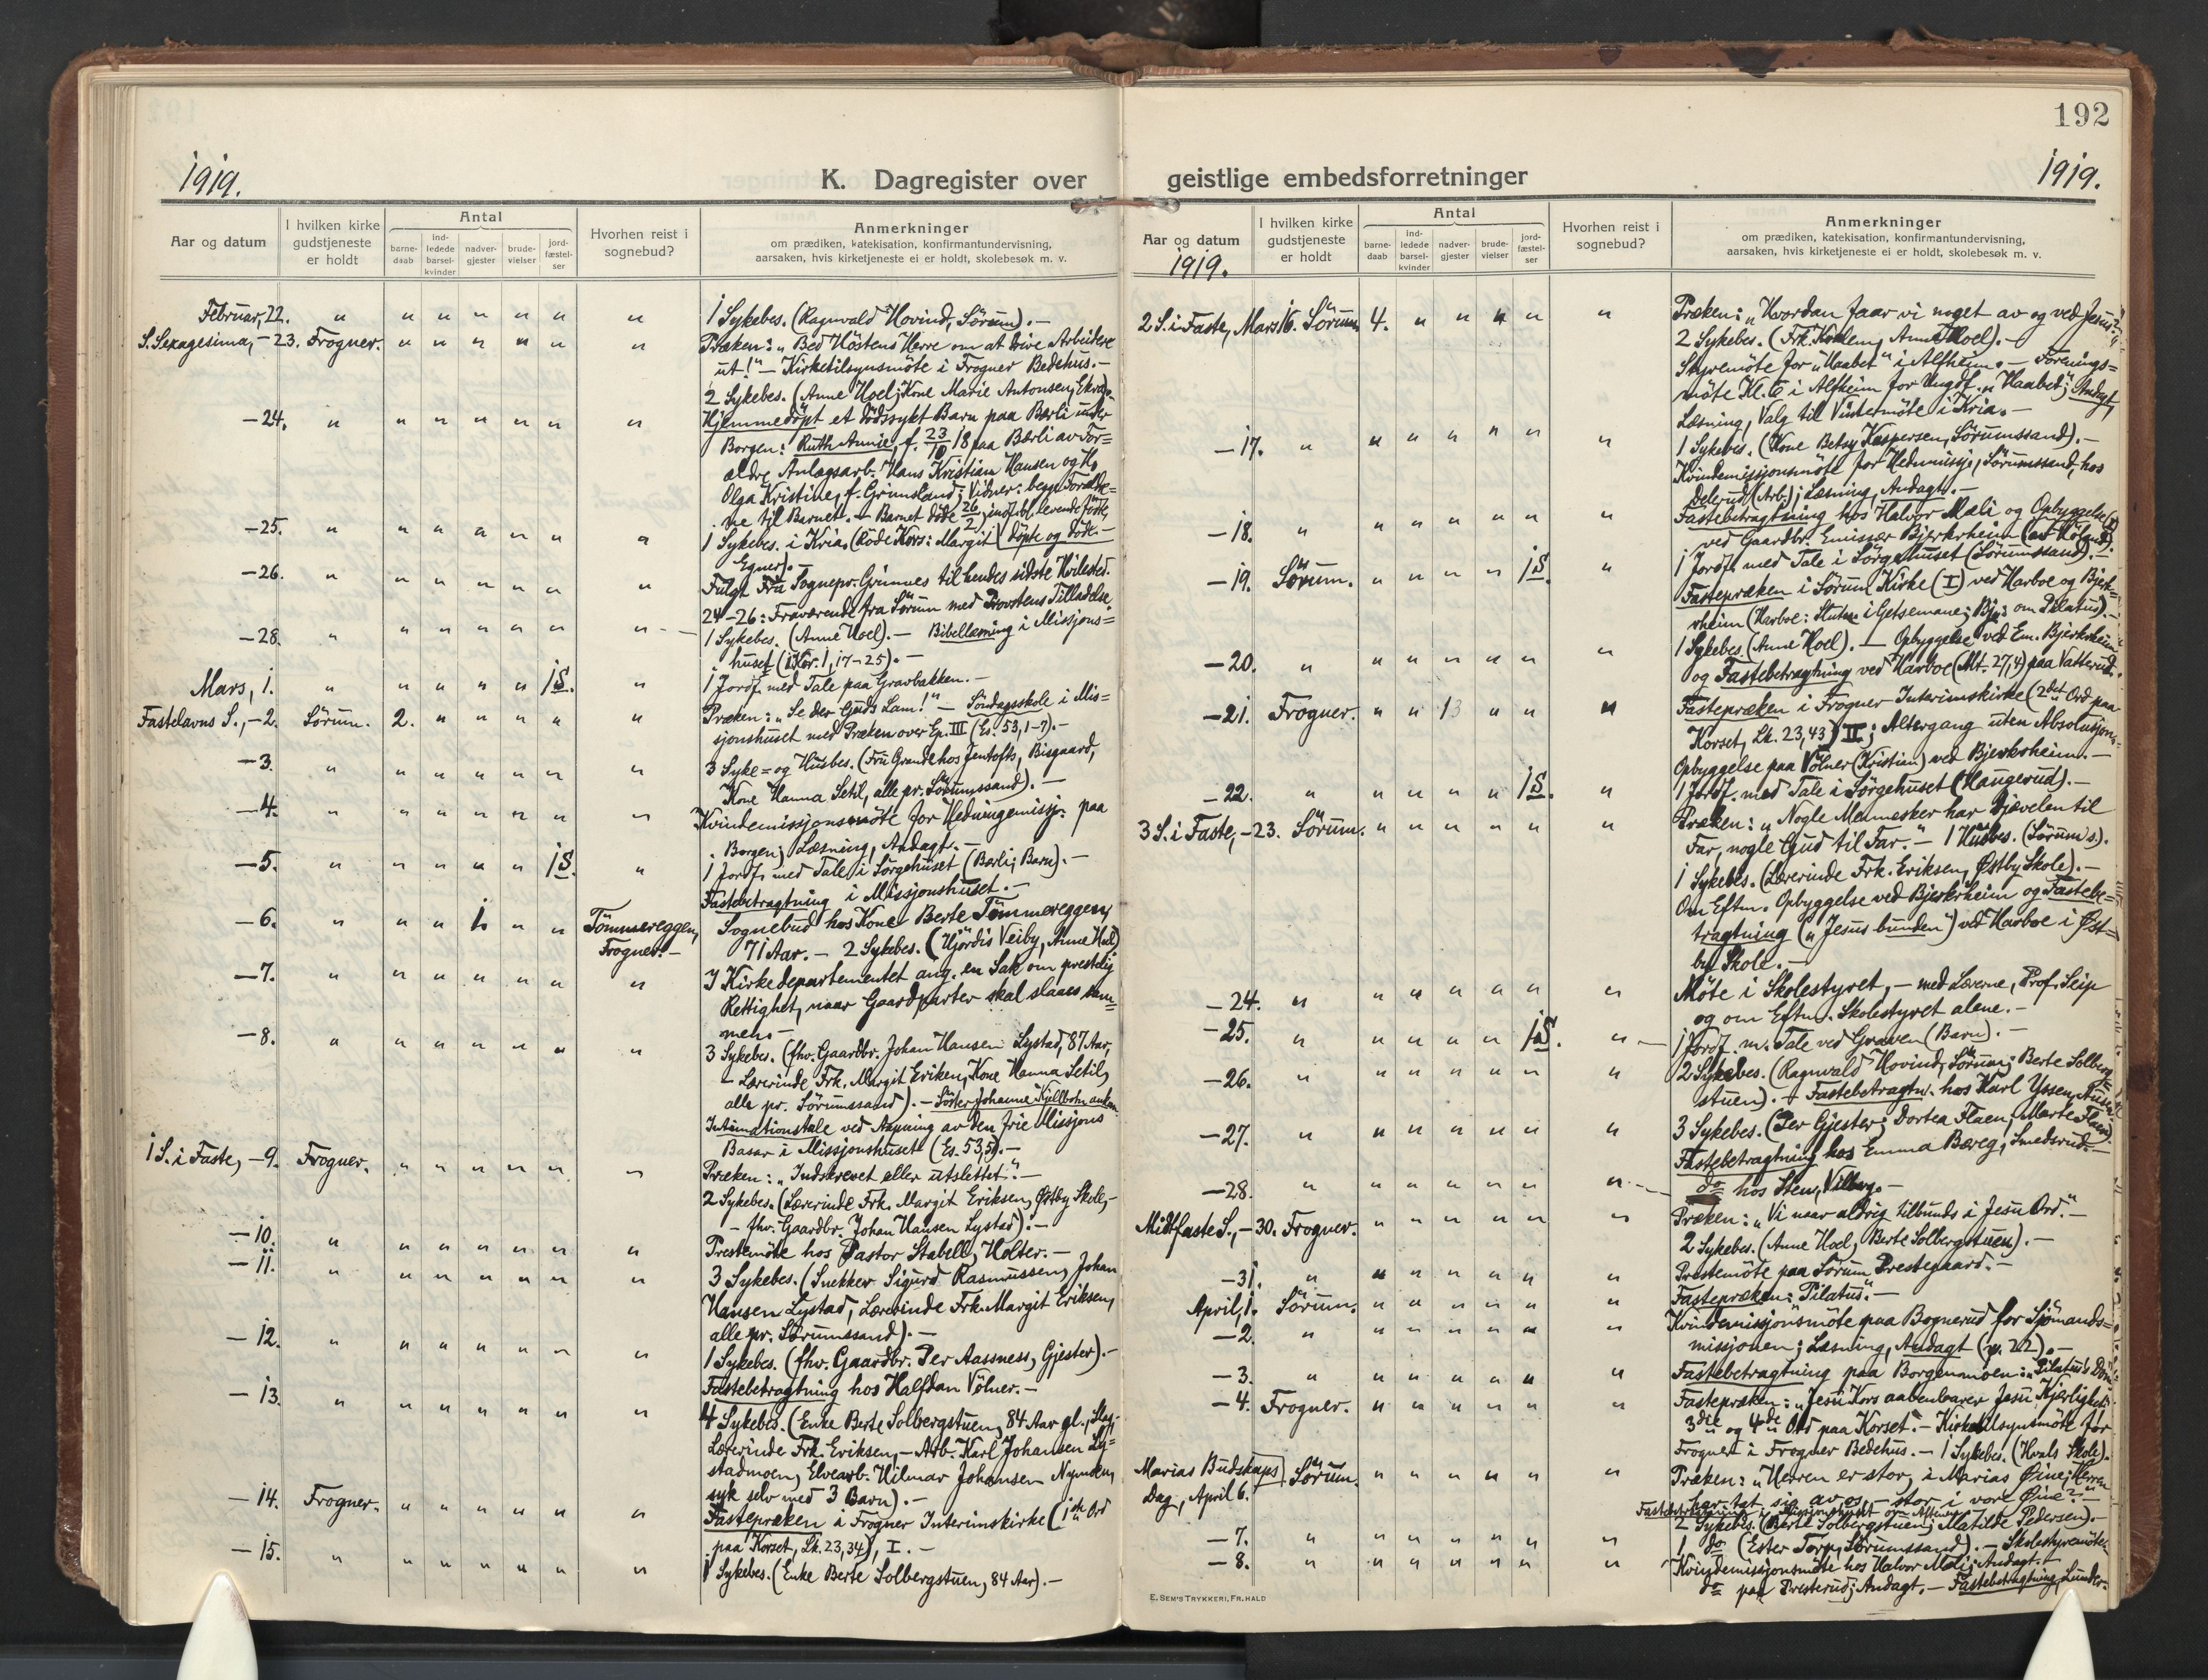 192
1919.
K. Dagregister over
Aar og datum
I hvilken kirke
gudstjeneste
er holdt
Antal
barne-
daab
ind-
ledede
barsel-
kvinder
nadver-
gjester
brude-
vielser
jord-
fæstel-
ser
Hvorhen reist i
sognebud?
Anmerkninger
om prædiken, katekisation, konfirmantundervisning,
aarsaken, hvis kirketjeneste ei er holdt, skolebesøk m. v.
Februar, 22. " " " " " " " 1 Sykebes. (Ragnvald Hovind, Sörum). —
S. Sexagesima, — 23. Frogner. " " " " " " Præken: „Bed Höstens Herre om at drive Arbeidere
ut!" — Kirketilsynsmöte i Frogner Bedehus. —
2 Sykebes. (Anne Hoel; Kone Marie Antonsen,
— 24. " " " " " " " Hjemmedöpt et dödssykt Barn paa Bærli under
Borgen: Ruth Annie, f. 23/10 18 paa Bærli av For=
ældre Anlægsarb. Hans Kristian Hansen og H.
Olga Kristine, f. Grimsland; Vidner: begge Foræld=
re til Barnet. — Barnet döde 26/2; indf. bl. levende födte,
— 25. " " " " " " " 1 Sykebes. i Kria. (Röde Kors: Margit | döpte og döde. —
Egner). —
— 26. " " " " " " " Fulgt Fru Sognepr. Grimnes til hendes sidste Hvilested.
24-26: Fraværende fra Sörum med Provstens Tilladelse.
— 28. " " " " " " " 1 Sykebes. (Anne Hoel). — Bibellæsning i Missjons=
huset (1 Kor. 1, 17-25). —
Mars, 1. " " " " " 1 S. " 1 Jordf. med Tale paa Gravbakken. —
Fastelavns S., — 2. Sörum. 2. " " " " " Præken: „Se der Guds Lam!" — Söndagsskole i Mis=
sjonshuset med Præken over Ep. III (Es. 53, 1-7). —
— 3. " " " " " " " 3 Syke= og Husbes. (Fru Grande hos Jentofts, Bisgaard,
Kone Hanna Setil, alle pr. Sörumssand). —
— 4. " " " " " " " Kvindemissjonsmöte for Hedningemissj. paa
Borgen; Læsning, Andagt. —
— 5. " " " " " 1 S. " 1 Jordf. med Tale i Sörgehuset (Bærli; Barn). —
Fastebetragtning i Missjonshuset. —
— 6. " " " 1. " " Tömmereggen, Sognebud hos Kone Berte Tömmereggen,
Frogner. — 71 Aar. — 2 Sykebes. (Hjördis Veiby, Anne Hoel)
— 7. " " " " " " " I Kirkedepartementet ang. en Sak om prestelig
Rettighet, naar Gaardparter skal slaaes sam=
men. —
— 8. " " " " " " " 3 Sykebes. (fhv. Gaardbr. Johan Hansen Lystad, 87 Aar,
— Lærerinde Frk. Margit Eriken, Kone Hanna Setil,
alle pr. Sörumssand). — Söster Johanne Kjellbotn ankom.
Intimationstale ved Aapning av den frie Missjons
Basar i Missjonshuset (Es. 53,5). —
1 S. i Faste, — 9. Frogner. " " " " " " Præken: „Indskrevet eller utslettet". —
2 Sykebes. (Lærerinde Frk. Margit Eriksen, Østby Skole, —
— fhv. Gaardbr. Johan Hansen Lystad). —
— 10. " " " " " " " Prestemöte hos Pastor Stabell, Holter. —
— 11. " " " " " " " 3 Sykebes. (Snekker Sigurd Rasmussen, Johan
Hansen Lystad, Lærerinde Frk. Margit Eriksen,
alle pr. Sörumssand). —
— 12. " " " " " " " 1 Sykebes. (fhv. Gaardbr. Per Aassness, Gjester). —
Fastebetragtning hos Halfdan Völner. —
— 13. " " " " " " " 4 Sykebes. (Enke Berte Solbergstuen, 84 Aar gl.,
Lærerinde Frk. Eriksen, — Arb. Karl Johansen Ly=
stadmoen, Elvearb. Hilmar Johansen Nymoen,
syk selv med 3 Barn). —
— 14. Frogner. " " " " " " Fastepræken i Frogner Interimskirke (1ste Ord
paa Korset, Lk. 23,34), I. —
— 15. " " " " " " " 1 Sykebes. (Enke Berte Solbergstuen, 84 Aar). —
geistlige embedsforretninger
1919.
Aar og datum
1919.
I hvilken kirke
gudstjeneste
er holdt
Antal
barne-
daab
ind-
ledede
barsel-
kvinder
nadver-
gjester
brude-
vielser
jord-
fæstel-
ser
Hvorhen reist i
sognebud?
Anmerkninger
om prædiken, katekisation, konfirmantundervisning,
aarsaken, hvis kirketjeneste ei er holdt, skolebesøk m. v.
2 S. i Faste, Mars 16. Sörum. 4. " " " " " Præken: „Hvordan faar vi noget av og ved Jesus?"
2 Sykebes. (Frk. Anne Hoel). —
Styremöte for „Haabet" i Alfheim. — Forenings=
möte Kl. 6 i Alfheim for Ungdf. „Haabet"; Andagt,
Læsning, Valg til Vintermöte i Kria. —
— 17. " " " " " " " 1 Sykebes. (Kone Betsy Kaspersen, Sörumssand). —
Kvindemissjonsmöte for Hedmissj., Sörumssand, hos
Delerud (Arb.); Læsning, Andagt. —
— 18. " " " " " " " Fastebetragtning hos Halvor Mæli og Opbyggelse (I)
ved Gaardbr. Emissær Bjerkrheim
— 19. Sörum. " " " " 1 S. " 1 Jordf. med Tale i Sörgehuset (Sörumssand). —
Fastepræken i Sörum Kirke (I) ved Harboe og Bjerk=
rheim (Harboe: i Getsemane; Bj.: om Pilatus). —
— 20. " " " " " " " 1 Sykebes. (Anne Hoel). — Opbyggelse ved Em. Bjerkrheim
og Fastebetragtning ved Harboe (Mt. 27,4) paa Vatterud.
— 21. Frogner. " " 13 " " " Fastepræken i Frogner Interimskirke (2det Ord paa
Korset, Lk. 23,43) II; Altergang uten Absolusjon.
Opbyggelse paa Völner (Kristian) ved Bjerkrheim. —
— 22. " " " " " 1 S. " 1 Jordf. med Tale i Sörgehuset (Haugerud). —
3 S. i Faste, — 23. Sörum. " " " " " " Præken: „Nogle Mennesker har Djævelen til
Far, nogle Gud til Far." — 1 Husbes. (Sörum s.).
1 Sykebes. (Lærerinde Frk. Eriksen, Østby Skole). —
Om Eftm. Opbyggelse ved Bjerkrheim og Fastebe=
tragtning („Jesus bunden") ved Harboe i Øst=
by Skole. —
— 24. " " " " " " " Möte i Skolestyret, — med Lærerne, Prof. Seip
og om Eftm. Skolestyret alene. —
— 25. " " " " " 1 S. " 1 Jordf. m. Tale ved Graven (Barn). —
— 26. " " " " " " " 2 Sykebes. (Ragnvald Hovind, Sörum; Berte Solberg=
stuen). — Fastebetragtn. hos Karl Yssen,
— 27. " " " " " " " 3 Sykebes. (Per Gjester; Dortea Flaen, Marte Flaen).
Fastebetragtning hos Emma Bæreg, Smedsrud. —
— 28. " " " " " " " do hos Sten, Vilberg. —
Midtfaste S., — 30. Frogner. " " " " " " Præken: „Vi naar aldrig tilbunds i Jesu Ord." —
2 Sykebes. (Anne Hoel, Berte Solbergstuen). —
— 31. " " " " " " " Prestemöte paa Sörum Prestegaard. —
April, 1. Sörum. " " " " " " Fastepræken: „Pilatus." —
— 2. " " " " " " " Kvindemissjonsmöte paa Bognerud for Sjömands=
missjonen; Læsning, Andagt (ps. 22). —
— 3. " " " " " " " Fastebetragtning paa Borgenmoen: „Pilatus's Dom
— 4. Frogner. " " " " " " Fastepræken: „Jesu Kors aabenbarer Jesu Kjærlighet.
3die og 4de Ord paa Korset". — Kirketilsynsmöte for
Frogner i Frogner Bedehus. — 1 Sykebes. (Hvals Skole).
Marias Budskaps Dag, April 6. Sörum. " " " " " " Præken: „Herren er stor i Marias Øine; Herren
har tat sig av os, — stor i vore Øine?" —
Fastebetragtning i Missjonshuset om Aftenen.
— 7. " " " " " " " 2 Sykebes. (Berte Solbergstuen; Matilde Pedersen). —
1 do (Ester Torp, Sörumssand). — Skolestyremöte.
— 8. " " " " " " " Kvindemissjonsmöte hos Halvor Mæli; Andagt. —
do paa Presterud; Andagt. — Fastebetragtning, Lunder.
E. SEM'S TRYKKERI, FR.HALD